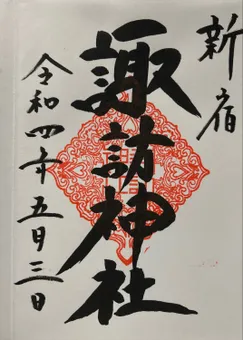 新宿
諏訪神社
令和四年五月三日